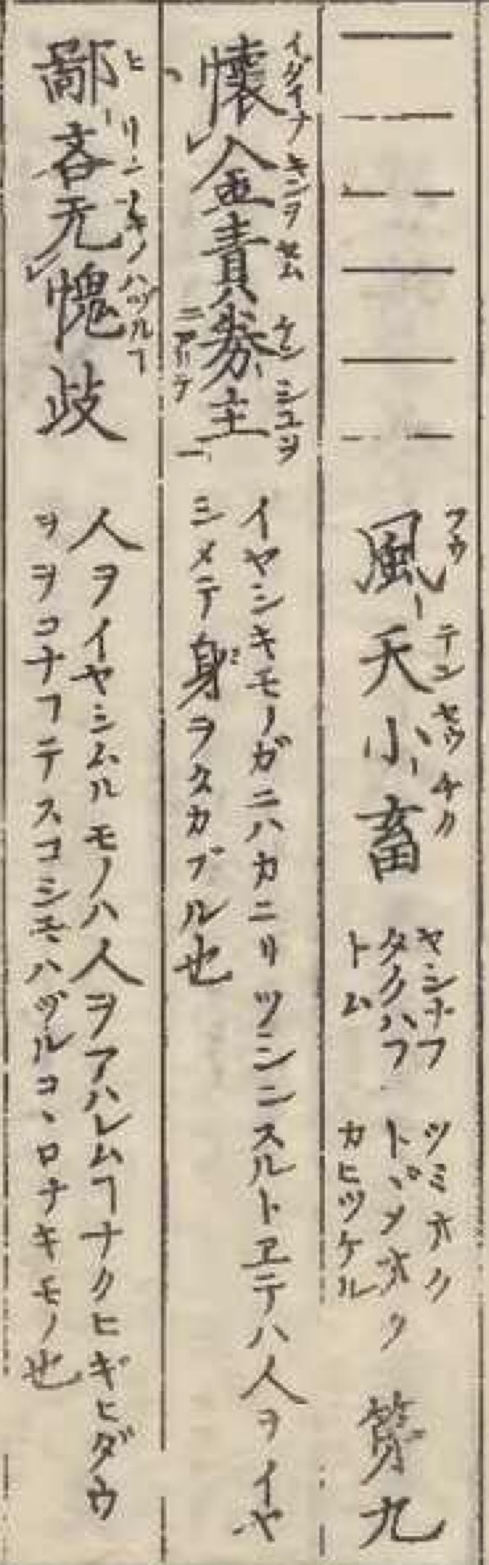 風天小畜 ヤシナフ タクハフ トム ツミオク トヾメオク カヒツケル 第九
フウ テン セウ チク
懐金責券主
イダイテ キンヲ セム ケン シユヲ
イヤシキモノガニハカニリツシンスルトヱテハ人ヲイヤ
シメテ身ヲタカブル也
鄙吝无愧歧
ヒ リン
人ヲイヤシムルモノハ人ヲアハレムヿナクヒギヒダウ
ヲヲコナフテスコシモハヅルコヽロナキモノ也